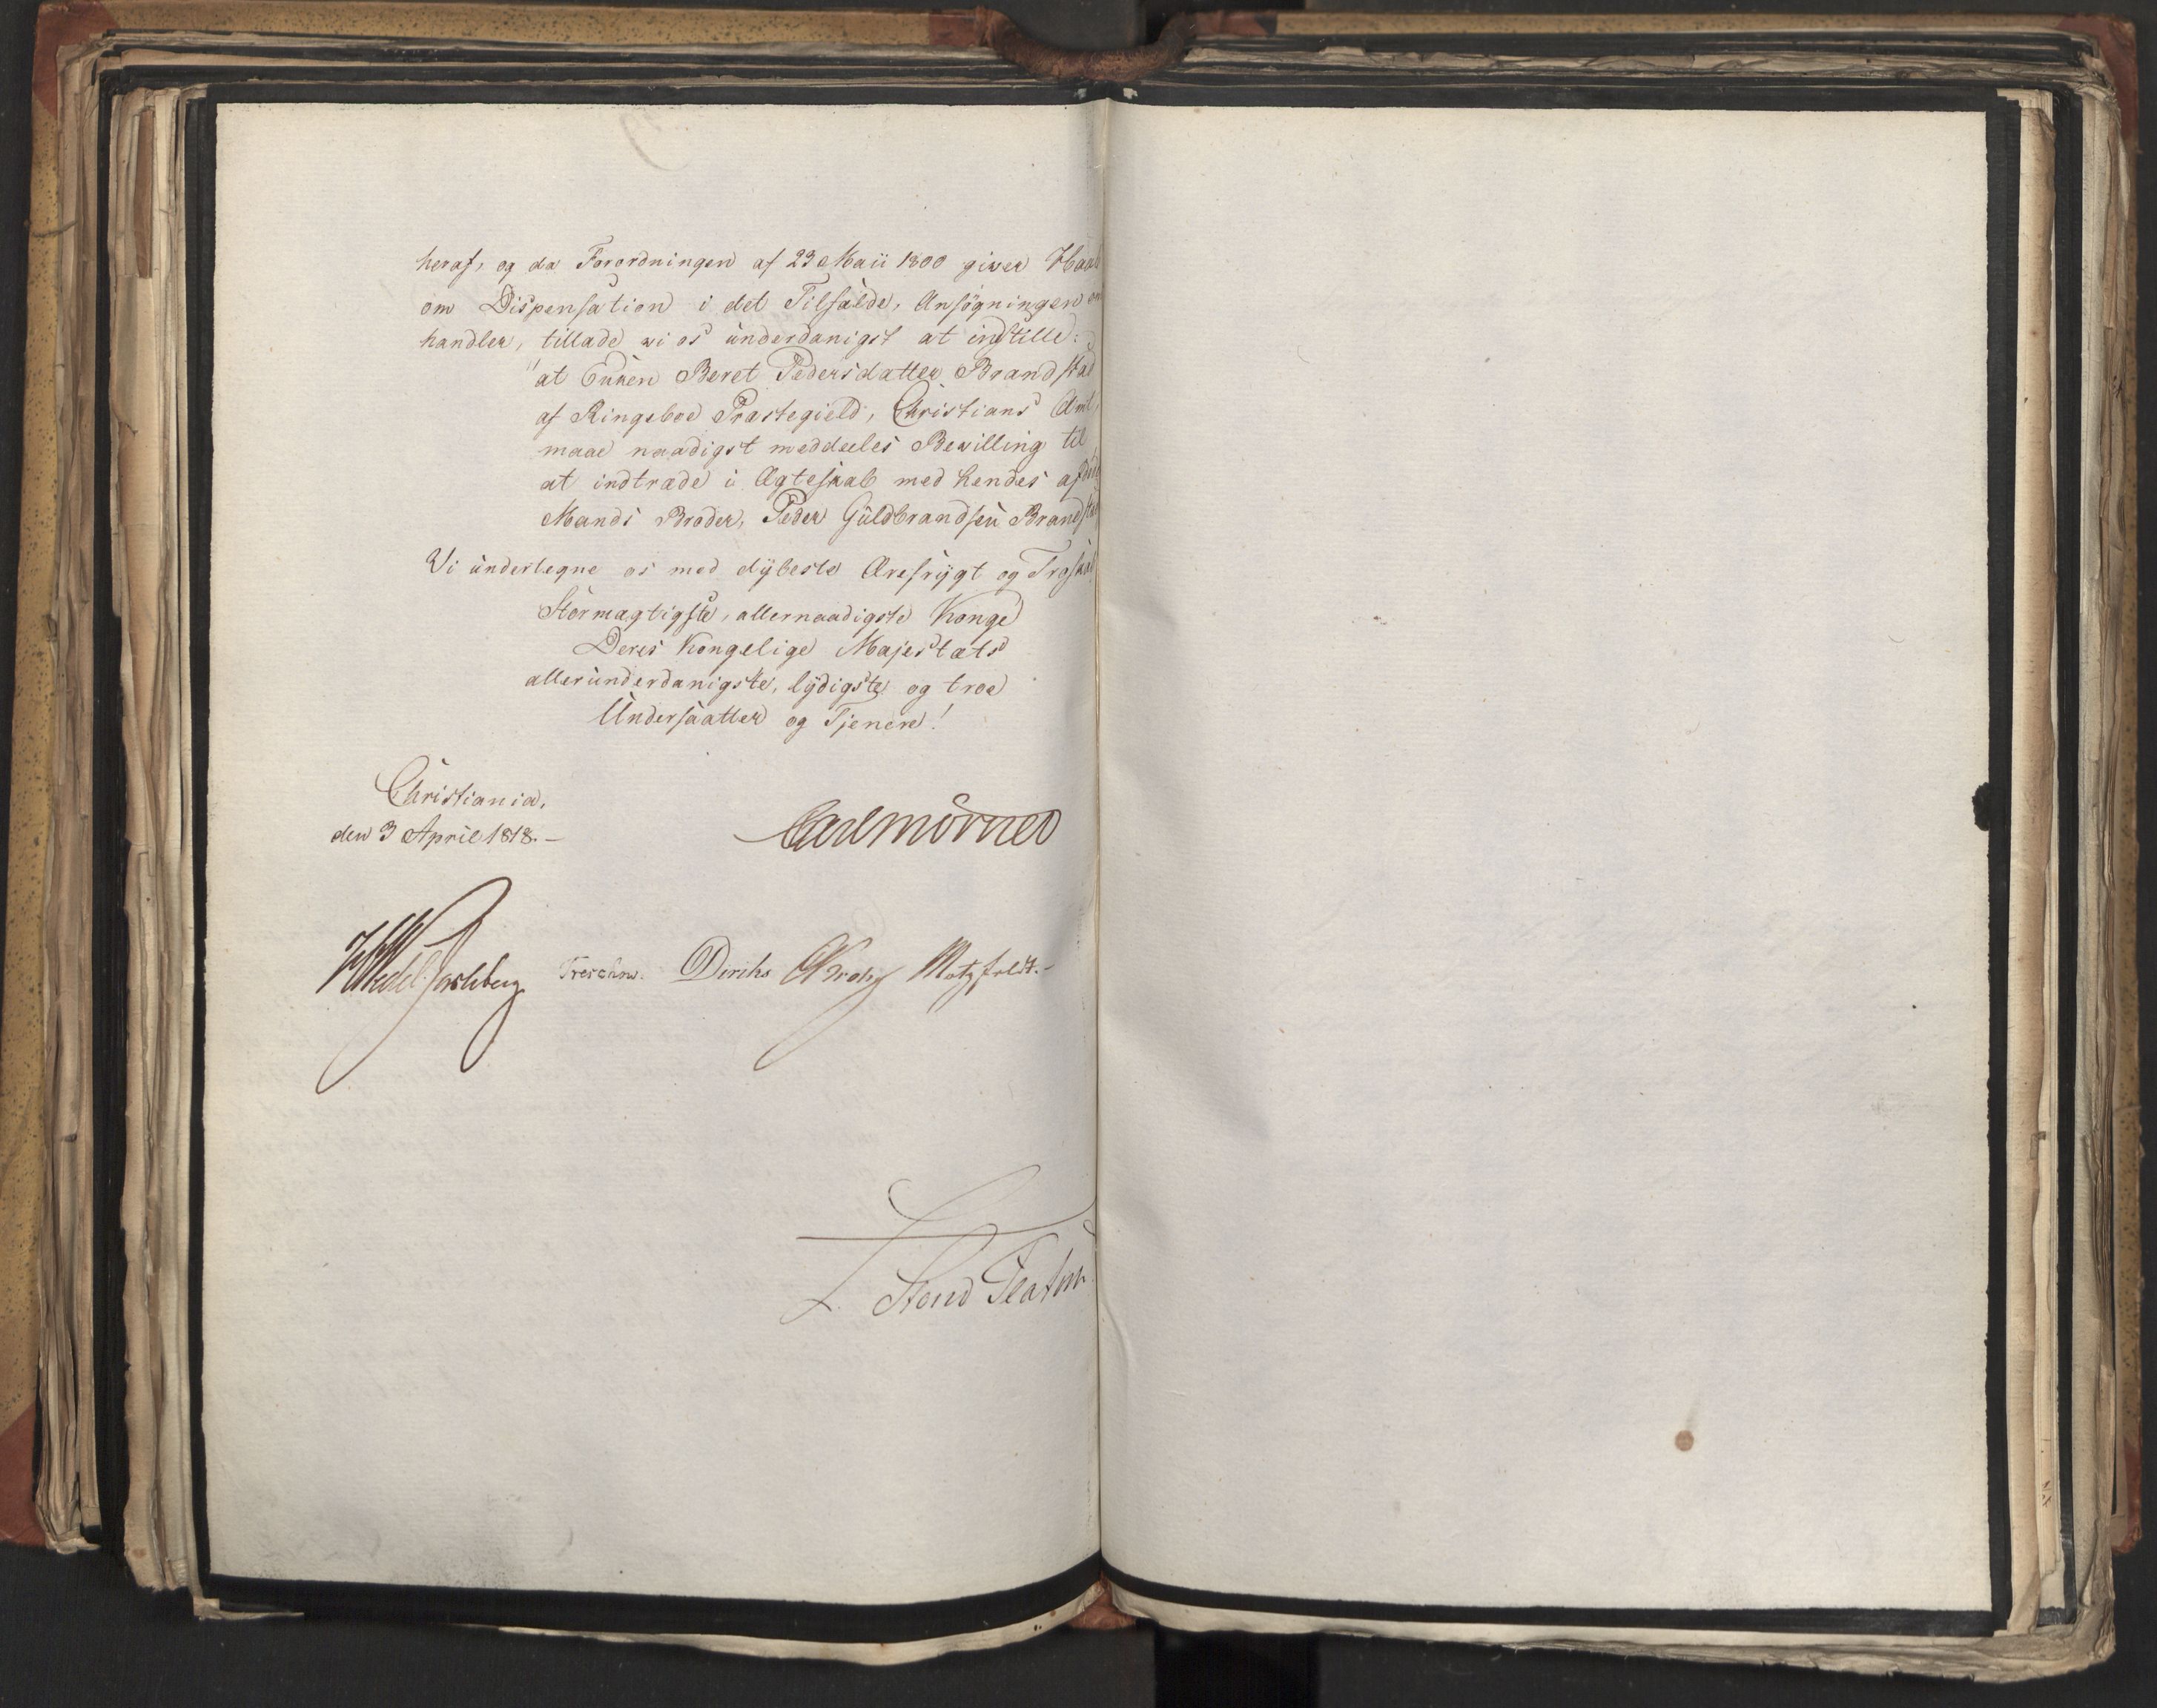 heraf, og da Forordningen af 23 Maii 1800 giver Haab
om Dispensation i det Tilfælde, Ansøgningen om
handler, tillade vi os underdanigst at indstille:
"at Enken Beret Pedersdatter Brandstad
af Ringeboe Præstegield, Christians Amt,
maae naadigst meddeeles Bevilling til
at indtræde i Ægteskab med hendes afdøde
Mands Broder, Peder Guldbrandsen Brandstad
Vi undertegne os med dybeste Ærefrygt og Troskab
Stormægtigste, allernaadigste Konge
Deres Kongelige Majestæts
allerunderdanigste, lydigste og troe
Undersaatter og Tjenere!
Christiania,
den 3 April 1818.-
Carl Mörner
HWedel Jarlsberg Treschow. Diriks Krohg Motzfeldt.-
L. Stoud Platou